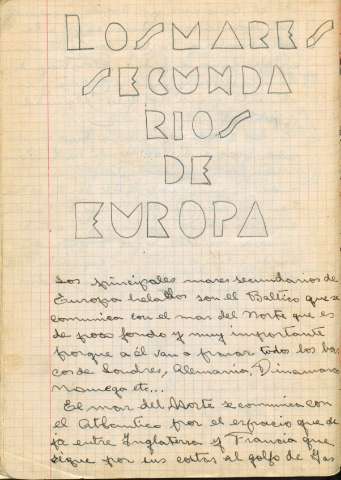 LOS MARES
SECUNDA
RIOS
DE
EUROPA
Los principales mares secundarios de
Europa helados son el Baltico que se
comunica con el mar del Norte que es
de poco fondo y muy importante
porque a él van a parar todos los bar
cos de Londres, Alemania, Dinamarca
Noruega etc...
El mar del Norte se comunica con
el Atlantico por el espacio que de
ja entre Inglaterra y Francia que
sigue por sus costas al golfo de Gas